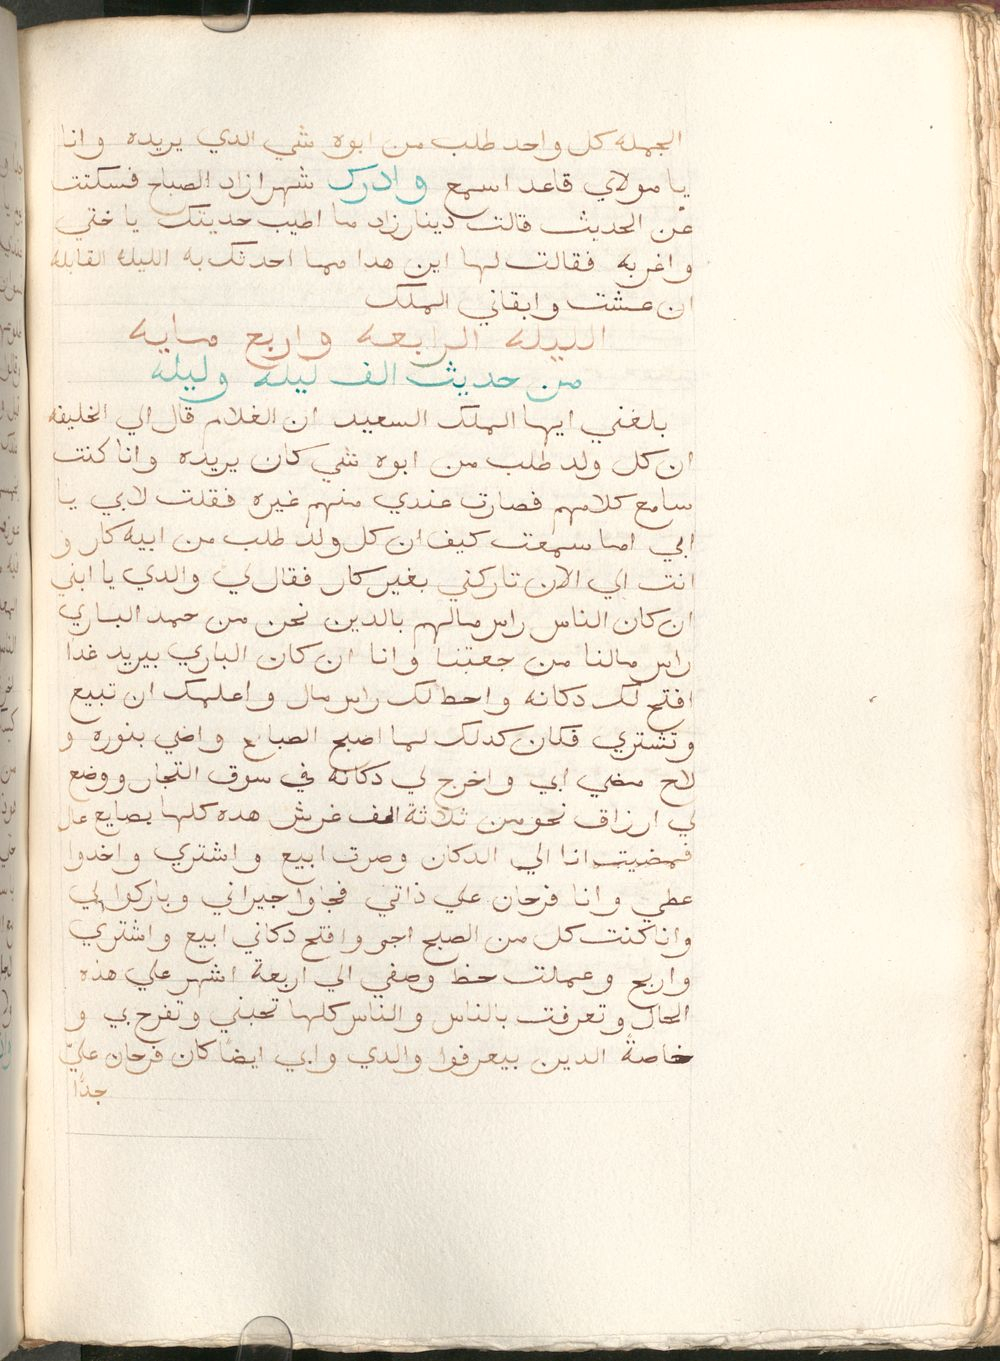 الجمله كل واحد طلب من ابوه شي الدي يريده وانا
يا مولاي قاعد اسمع وادرك شهرازاد الصباح فسكتت
عن الحديث قالت دينارزاد ما اطيب حديتك يا ختي
واغربه فقالت لها اين هدا مما احدتك به الليله القابله
ان عشت وابقاني الملك
الليله الرابعه واربع مايه
من حديث الف ليله وليله
بلغني ايها الملك السعيد ان الغلام قال الي الخليفه
ان كل ولد طلب من ابوه شي كان يريده وانا كنت
سامع كلامهم فصارت عندي منهم غيره فقلت لابي يا
ابي اما سمعت كيف ان كل ولد طلب من ابيه كار و
انت الي الان تاركني بغير كار فقال لي والدي يا ابني
ان كان الناس راس مالهم بالدين نحن من حمد الباري
راس مالنا من جعبتنا وانا ان كان الباري بيريد غدا
افتح لك دكانه واحط لك راس مال واعلمك ان تبيع
وتشتري فكان كدلك لما اصبح الصباح واضي بنوره و
لاح مضي ابي واخرج لي دكانه في سوق التجار ووضع
لي ارزاق نحو من ثلاثة الف غرش هده كلها بضايع عال
فمضيت انا الي الدكان وصرت ابيع واشتري واخدوا
عطي وانا فرحان علي ذاتي فجاوا جيراني وباركوا لي
وانا كنت كل من الصبح اجو وافتح دكاني ابيع واشتري
واربح وعملت حظ وصفي الي اربعة اشهر علي هذه
الحال وتعرفت بالناس والناس كلها تحبني وتفرح بي و
خاصة الدين بيعرفوا والدي وابي ايضا كان فرحان عليّ
جدًا